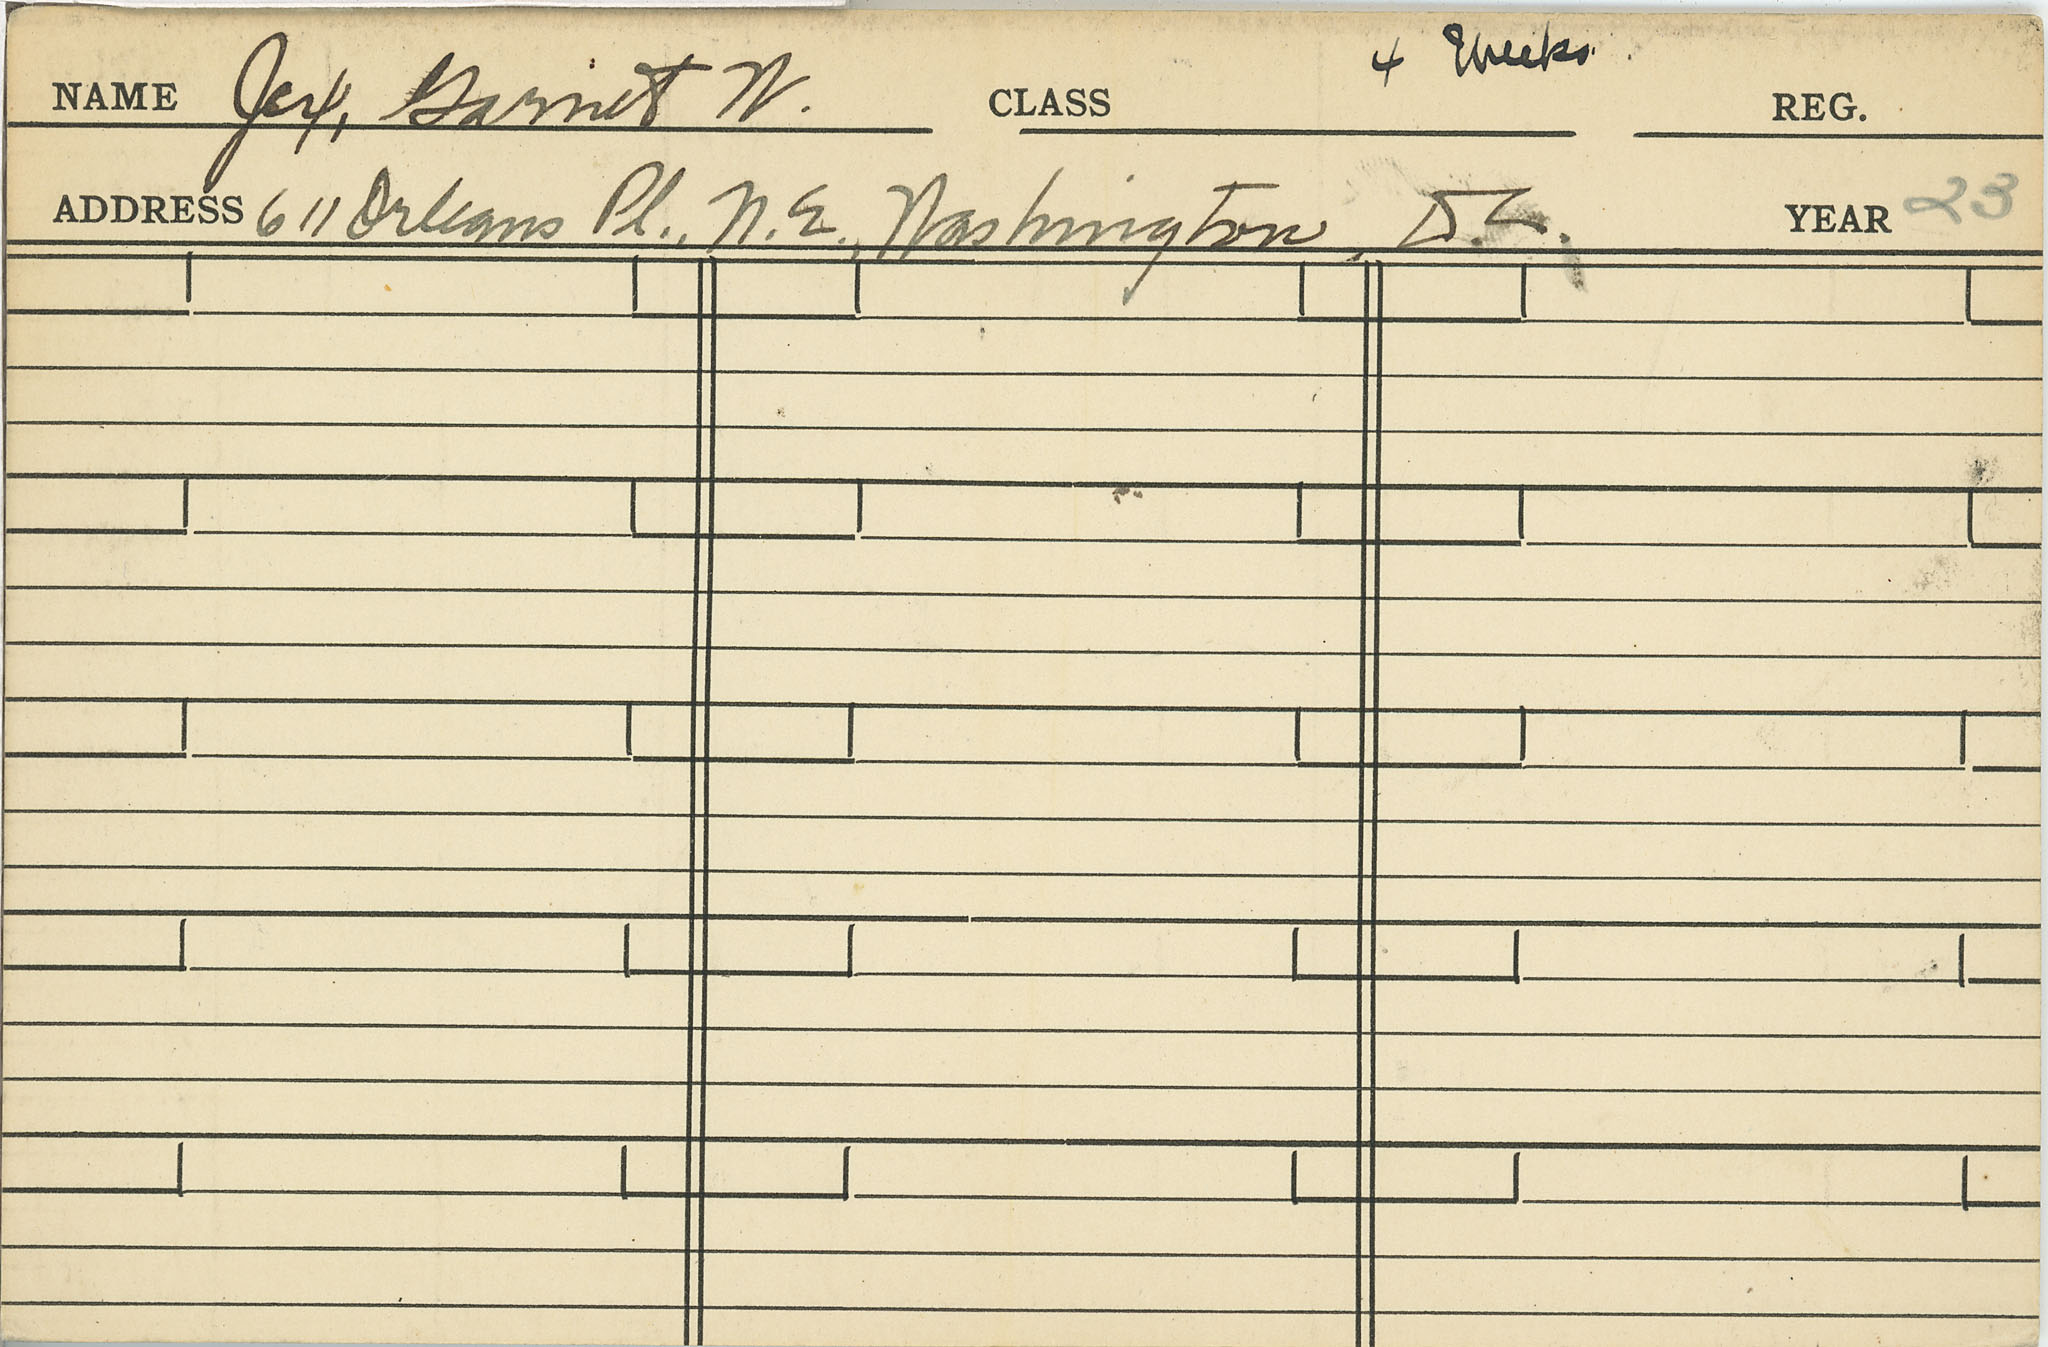 NAME Jex, Garnet W. CLASS 4 Weeks. REG.
ADDRESS 611 Orleans Pl., N.E., Washington, D.C. YEAR 23